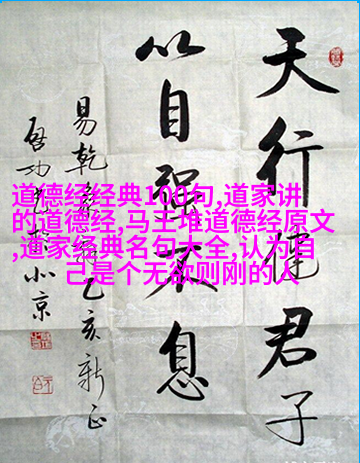 天行健君子
以自强不息
易乾乙亥新正
啓功北京
道德经经典100句,道家讲
的道德经,马王堆道德经原文
,道家经典名句大全,认为自
己是个无欲则刚的人